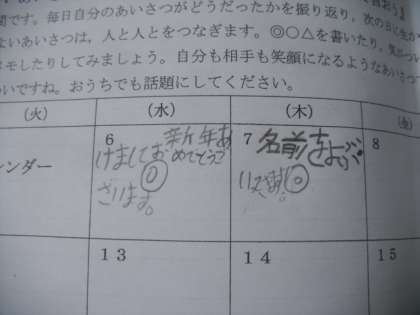 間です。毎日自分のあいさつがどうだったかを振り返り、次の日に生か
よいあいさつは、人と人とをつなぎます。◎○△を書いたり、気がつい
メモしたりしてみましょう。自分も相手も笑顔になるようなあいさ
いいですね。おうちでも話題にしてください。
(火) (水) (木) (金)
ンダー
6 新年あ
けましてお めでとうご
ざいます。
7 名前をよぶ
8
13 14 15